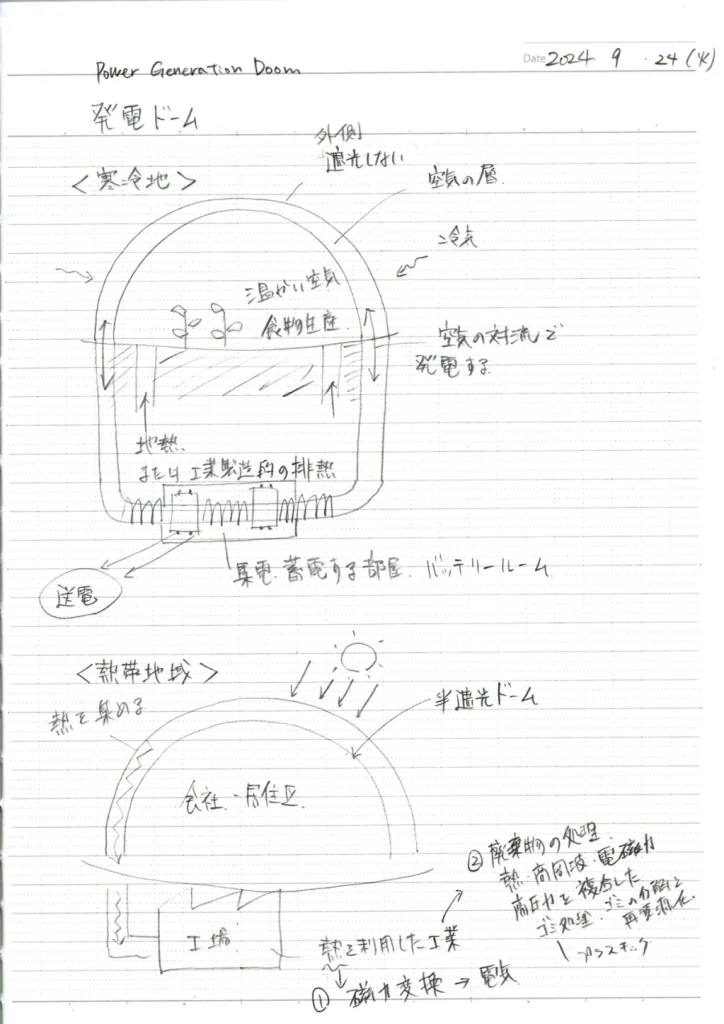 Date 2024 9 ・ 24 (火)
Power Generation Doom
発電ドーム
外側
遮光しない
<寒冷地>
空気の層
冷気
温かい空気
食物生産
空気の対流で
発電する
地熱
または工業製造段の排熱
集電・蓄電する部屋. バッテリールーム
送電
<熱帯地域>
熱を集める
半遮光ドーム
会社・居住区
工場
熱を利用した工業
① 磁力変換 → 電気
② 廃棄物の処理
熱・高周波・電磁力
高圧力を複合した
ゴミ処理. ゴミの分解と
再資源化
プラスチック